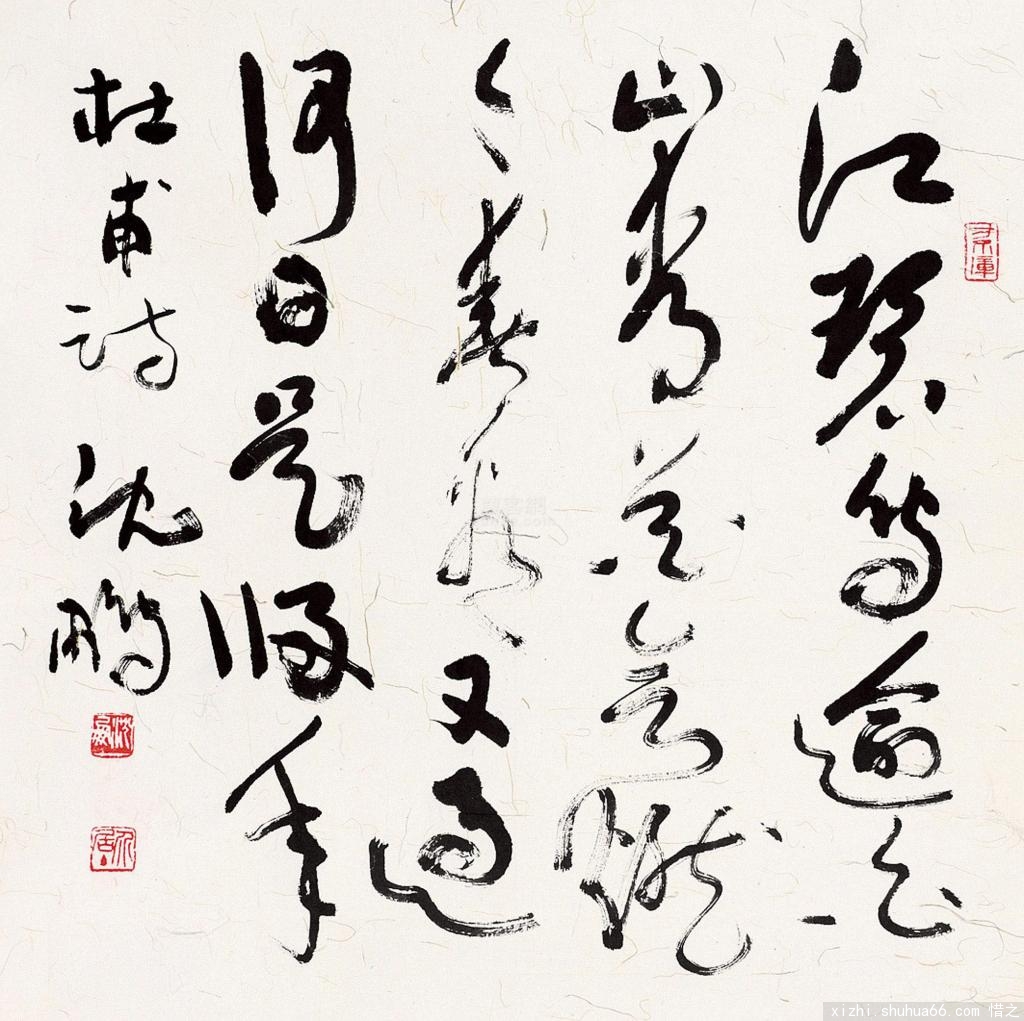 江碧鸟逾白
山青花欲燃
今春看又过
何日是归年
杜甫诗 沈鹏
沈鹏
介居
xizhi.shuhua66.com 惜之